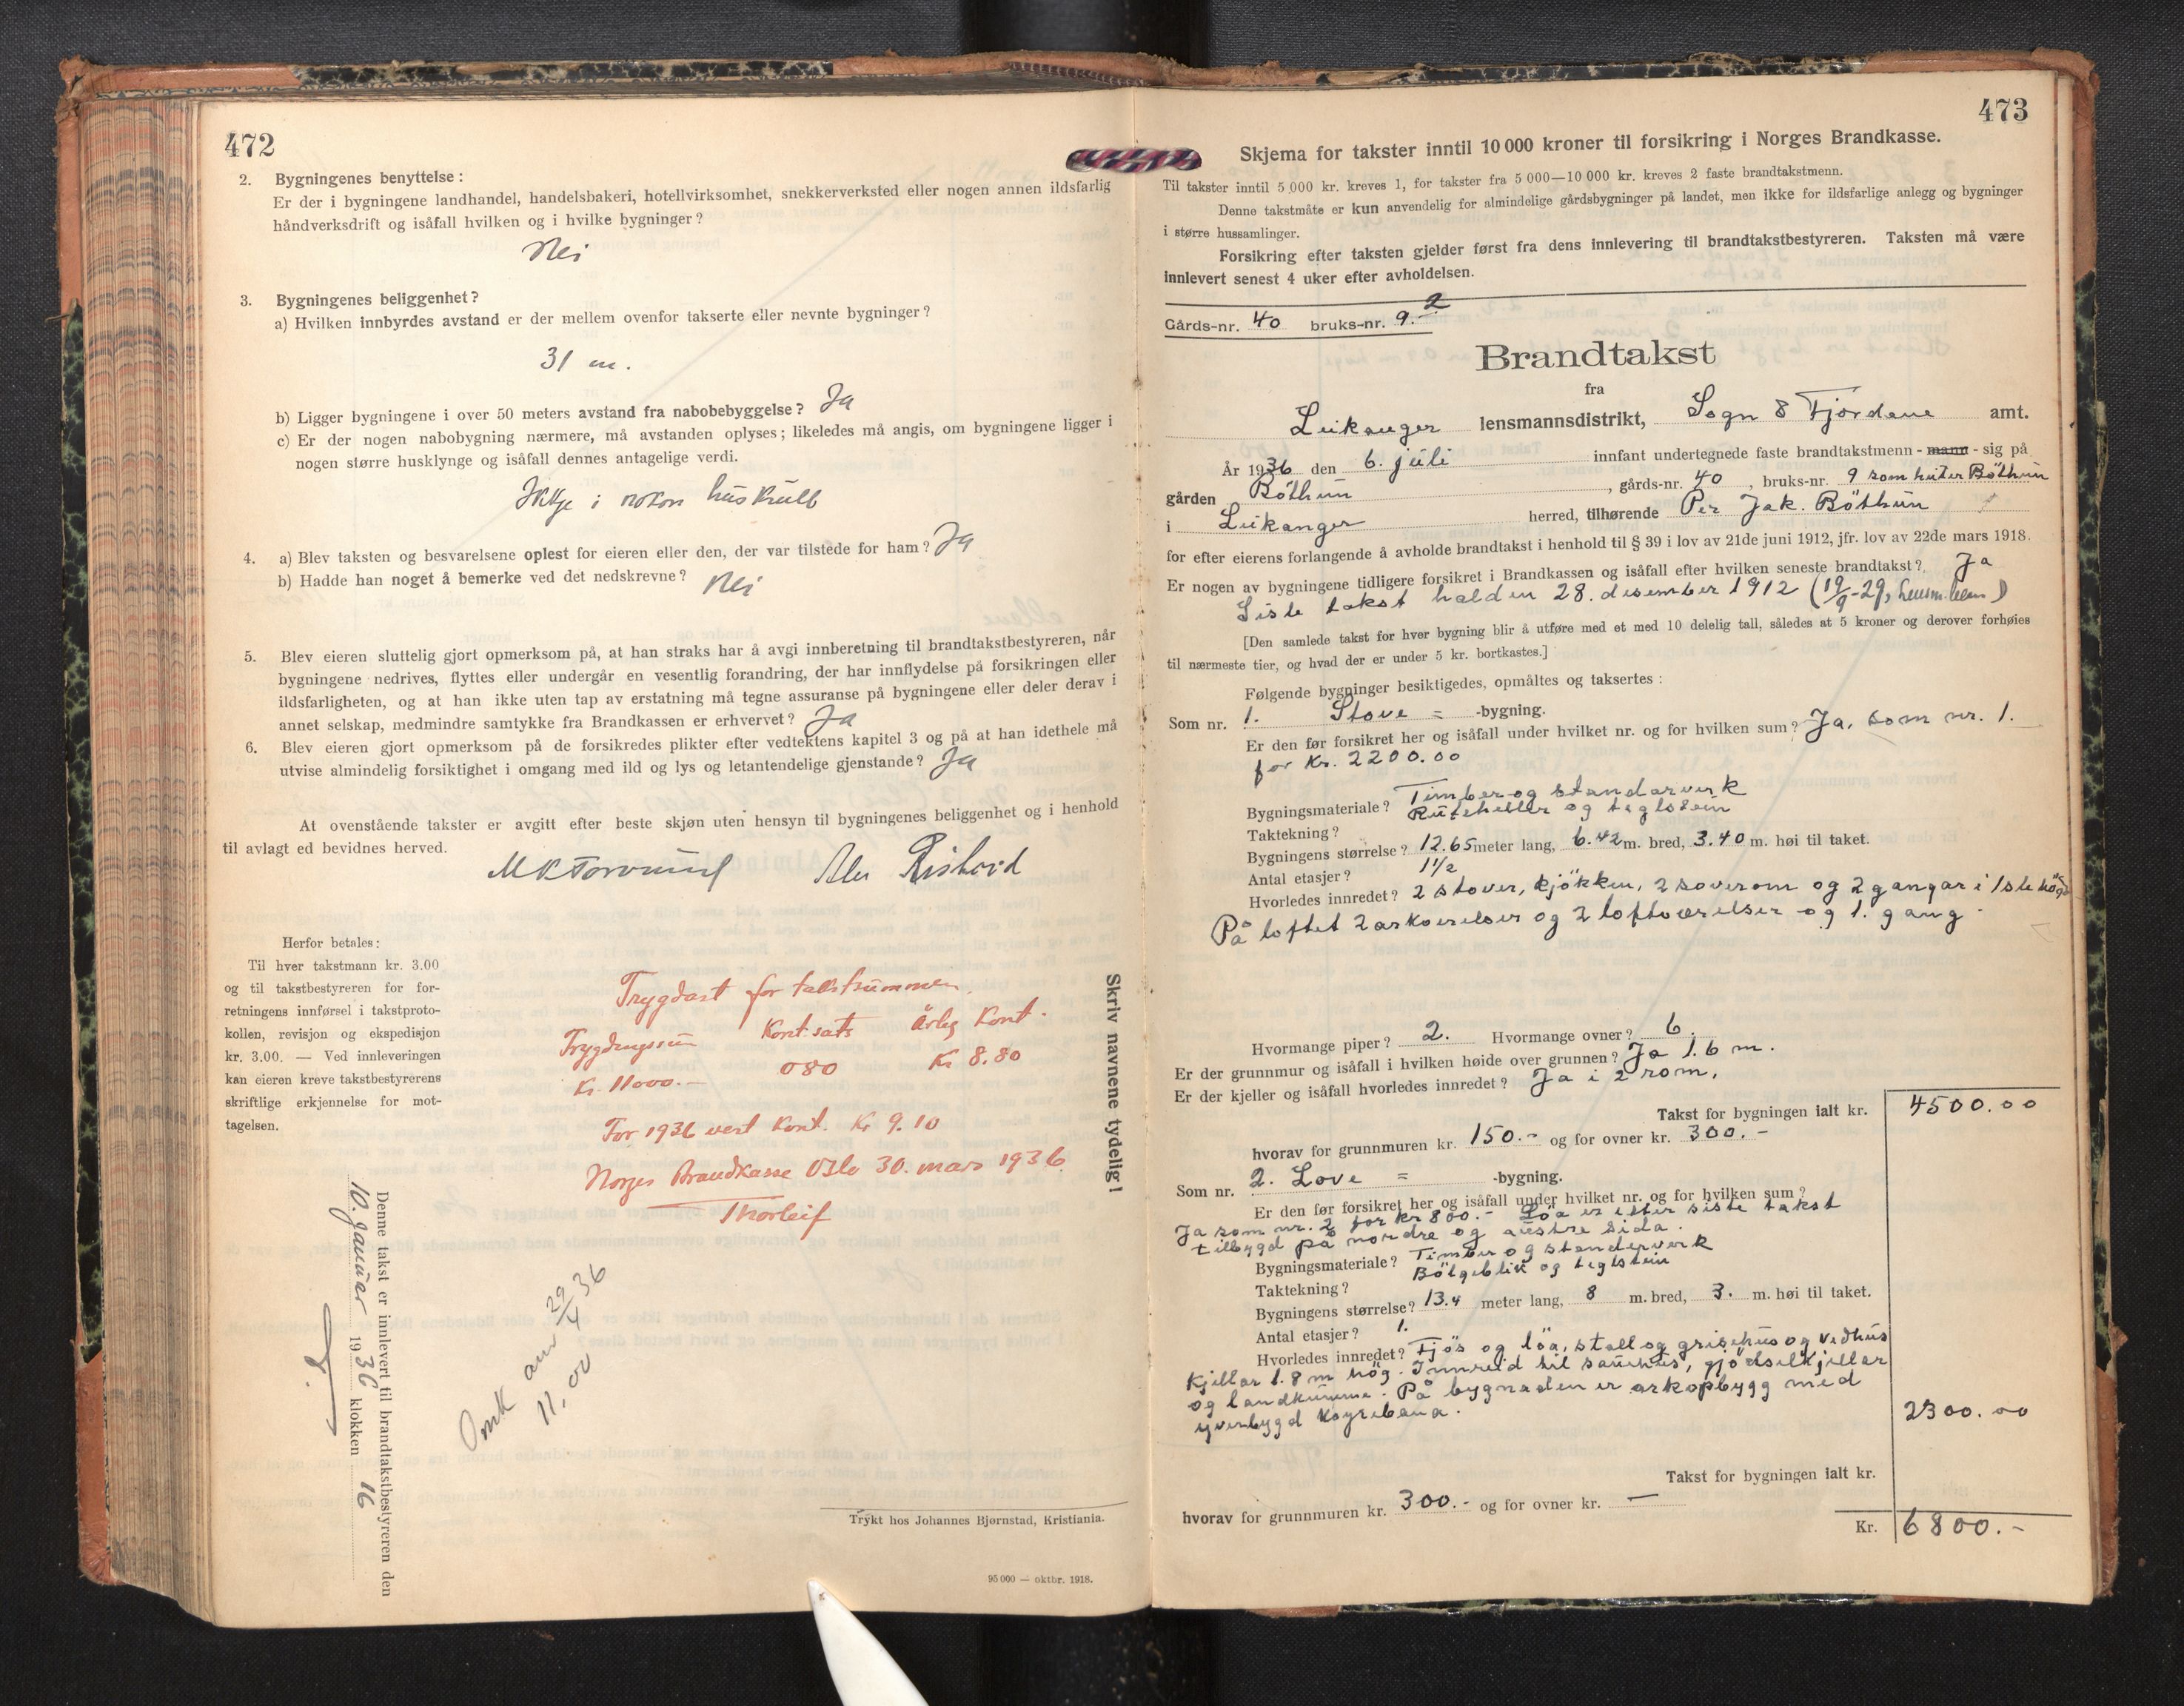 472
2. Bygningenes benyttelse:
Er der i bygningene landhandel, handelsbakeri, hotellvirksomhet, snekkerverksted eller nogen annen ildsfarlig
håndverksdrift og isåfall hvilken og i hvilke bygninger?
Nei
3. Bygningenes beliggenhet?
a) Hvilken innbyrdes avstand er der mellem ovenfor takserte eller nevnte bygninger?
31 m.
b) Ligger bygningene i over 50 meters avstand fra nabobebyggelse? Ja
c) Er der nogen nabobygning nærmere, må avstanden oplyses; likeledes må angis, om bygningene ligger i
nogen større husklynge og isåfall dennes antagelige verdi.
Ikkje i nokon huskrull
4. a) Blev taksten og besvarelsene oplest for eieren eller den, der var tilstede for ham? Ja
b) Hadde han noget å bemerke ved det nedskrevne? Nei
5. Blev eieren sluttelig gjort opmerksom på, at han straks har å avgi innberetning til brandtakstbestyreren, når
bygningene nedrives, flyttes eller undergår en vesentlig forandring, der har innflydelse på forsikringen eller
ildsfarligheten, og at han ikke uten tap av erstatning må tegne assuranse på bygningene eller deler derav i
annet selskap, medmindre samtykke fra Brandkassen er erhvervet? Ja
6. Blev eieren gjort opmerksom på de forsikredes plikter efter vedtektens kapitel 3 og på at han idethele må
utvise almindelig forsiktighet i omgang med ild og lys og letantendelige gjenstande? Ja
At ovenstående takster er avgitt efter beste skjøn uten hensyn til bygningenes beliggenhet og i henhold
til avlagt ed bevidnes herved.
Herfor betales:
Til hver takstmann kr. 3.00
og til takstbestyreren for for-
retningens innførsel i takstproto-
kollen, revisjon og ekspedisjon
kr. 3.00. — Ved innleveringen
kan eieren kreve takstbestyrerens
skriftlige erkjennelse for mot-
tagelsen.
Trygdast for takstsummen.
Trygdingssum Kont.sats Årleg Kont.
Kr. 11000.— 080 Kr 8.80
For 1936 vert Kont. Kr 9.10
Norges Brandkasse Oslo 30. mars 1936.
Thorleif
Skriv navnene tydelig!
Denne takst er innlevert til brandtakstbestyreren den
10. januar 1936 klokken 16
29/4 36
11,00
Trykt hos Johannes Bjørnstad, Kristiania.
95 000 — oktbr. 1918.
473
Skjema for takster inntil 10 000 kroner til forsikring i Norges Brandkasse.
Til takster inntil 5 000 kr. kreves 1, for takster fra 5 000—10 000 kr. kreves 2 faste brandtakstmenn.
Denne takstmåte er kun anvendelig for almindelige gårdsbygninger på landet, men ikke for ildsfarlige anlegg og bygninger
i større hussamlinger.
Forsikring efter taksten gjelder først fra dens innlevering til brandtakstbestyreren. Taksten må være
innlevert senest 4 uker efter avholdelsen.
2
Gårds-nr. 40 bruks-nr. 9.
Brandtakst
fra
Leikanger lensmannsdistrikt, Sogn & Fjordane amt.
År 1936 den 6. juli innfant undertegnede faste brandtakstmenn - mann - sig på
gården Böthun, gårds-nr. 40, bruks-nr. 9 som heiter Böthun
i Leikanger herred, tilhørende Per Jak. Böthun
for efter eierens forlangende å avholde brandtakst i henhold til § 39 i lov av 21de juni 1912, jfr. lov av 22de mars 1918.
Er nogen av bygningene tidligere forsikret i Brandkassen og isåfall efter hvilken seneste brandtakst? Ja
Siste takst halden 28. desember 1912 (19/9-29,
[Den samlede takst for hver bygning blir å utføre med et med 10 delelig tall, således at 5 kroner og derover forhøies
til nærmeste tier, og hvad der er under 5 kr. bortkastes.]
Følgende bygninger besiktigedes, opmåltes og taksertes:
Som nr. 1. Stove = -bygning.
Er den før forsikret her og isåfall under hvilket nr. og for hvilken sum? Ja, som nr. 1.
for Kr. 2200.00
Bygningsmateriale? Timber og standarverk
Taktekning? Ruteheller og teglstein
Bygningens størrelse? 12.65 meter lang, 6.42 m. bred, 3.40 m. høi til taket.
Antal etasjer? 1½
Hvorledes innredet? 2 stover, kjökken, 2 soverom og 2 gangar i 1ste högd
På loftet 2 arkverelser og 2 loftværelser og 1. gang.
Hvormange piper? 2. Hvormange ovner? 6.
Er der grunnmur og isåfall i hvilken høide over grunnen? Ja 1.6 m.
Er der kjeller og isåfall hvorledes innredet? Ja i 2 rom.
Takst for bygningen ialt kr. 4500.00
hvorav for grunnmuren kr. 150.- og for ovner kr. 300.-
Som nr. 2. Löe = -bygning.
Er den før forsikret her og isåfall under hvilket nr. og for hvilken sum?
Ja som nr. 2 for kr 800.- Löa er etter siste takst
tilbygd på nordre og austre sida.
Bygningsmateriale? Timber og standerverk
Taktekning? Bölgeblik og teglstein
Bygningens størrelse? 13.4 meter lang, 8 m. bred, 3. m. høi til taket.
Antal etasjer? 1.
Hvorledes innredet? Fjös og löa, stall og grisehus og vedhus
Kjellar 1.8 m hög. Innreid til sauehus, gjödselkjellar
og landkumme. På bygnaden er arkopbygg med
yverbygd köyrebana.
2300.00
Takst for bygningen ialt kr.
hvorav for grunnmuren kr. 300.- og for ovner kr. —
Kr. 6800.-